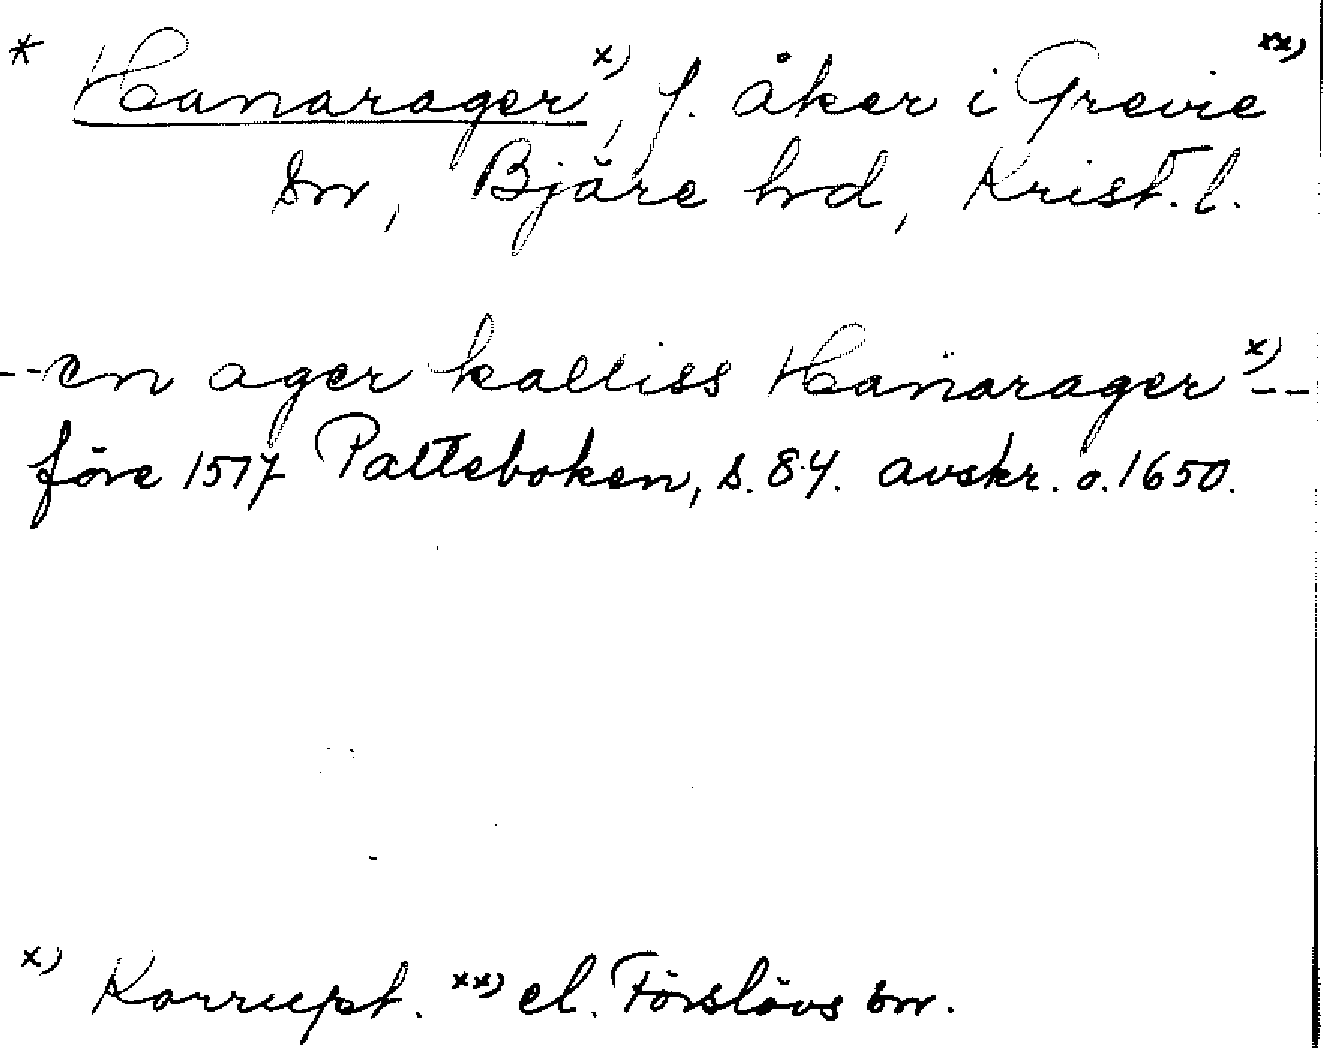 * Hanarager x), f. åker i Grevie xx)
sn, Bjäre hd, Krist. l.
--en ager kalliss Hanarager x)--
före 1577 Palteboken, s. 84. avskr. o. 1650.
x) Korrupt. xx) el. Förslövs sn.